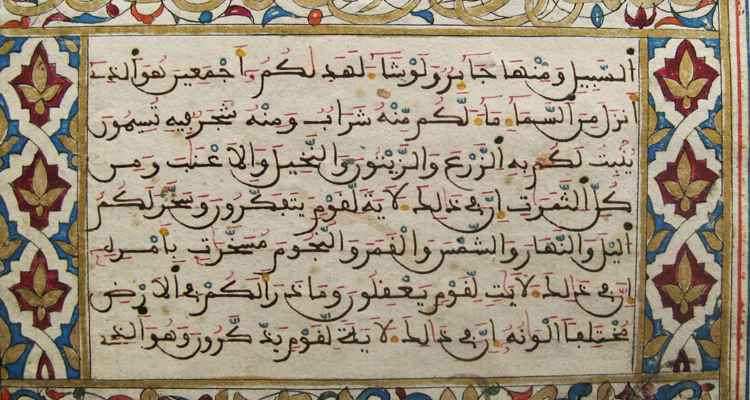 السبيل ومنها جاير ولو شا لهديكم أجمعين هو الذي
أنزل من السما ما لكم منه شراب ومنه شجر فيه تسيمون
ينبت لكم به الزرع والزيتون والنخيل والاعنب ومن
كل الثمرت إن في ذلك لاية لقوم يتفكرون وسخر لكم
اليل والنهار والشمس والقمر والنجوم مسخرت بأمره
إن في ذلك لايت لقوم يعقلون وما ذرأ لكم في الارض
مختلفا ألونه إن في ذلك لاية لقوم يذكرون وهو الذي